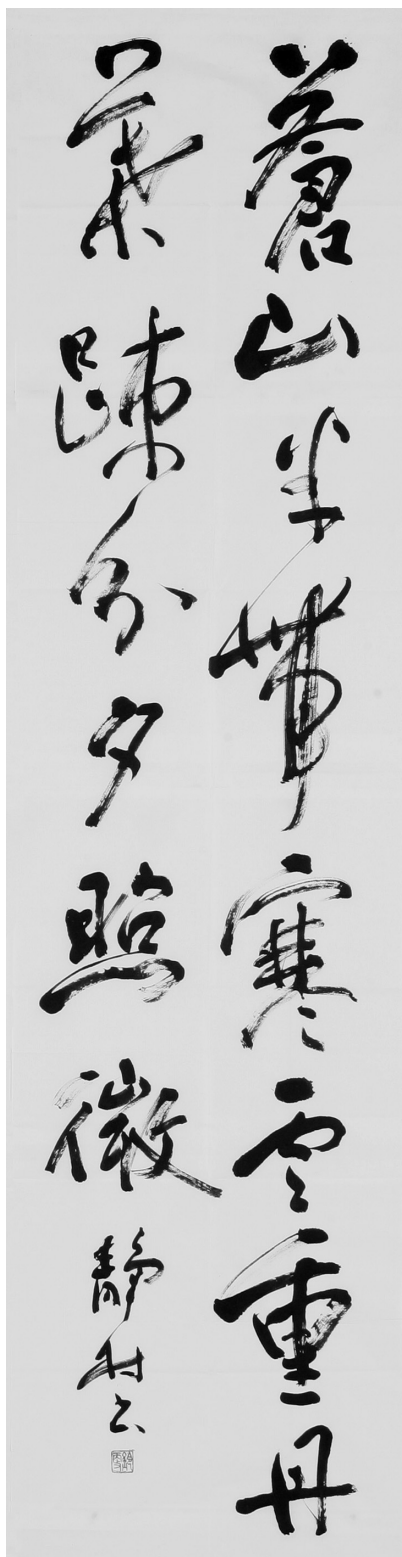 蒼山半帶寒雲重丹
葉疎分夕照微
靜村書